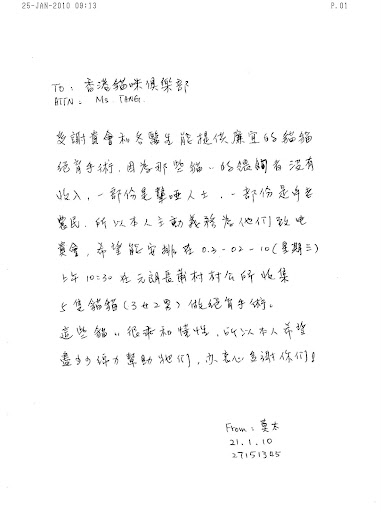 25-JAN-2010 09:13 P.01
To: 香港貓咪俱樂部
ATTN: Ms. TANG.
多謝貴會和各醫生能提供廉宜的貓貓
絕育手術. 因為那些貓..的餵飼者沒有
收入, 一部份是聾啞人士, 一部份是年老
農民. 所以本人主動義務為他們致電
貴會, 希望能安排在03-02-10(星期三)
上午10:30在元朗長莆村村公所收集
5隻貓貓(3女2男)做絕育手術.
這些貓..很柔和慢性, 所以本人希望
盡少少綿力幫助牠們, 衷心多謝你們!
From: 莫太
21.1.10
27151345